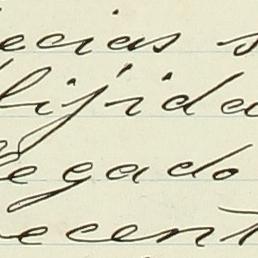 ecias s
bijida
legado
ecent